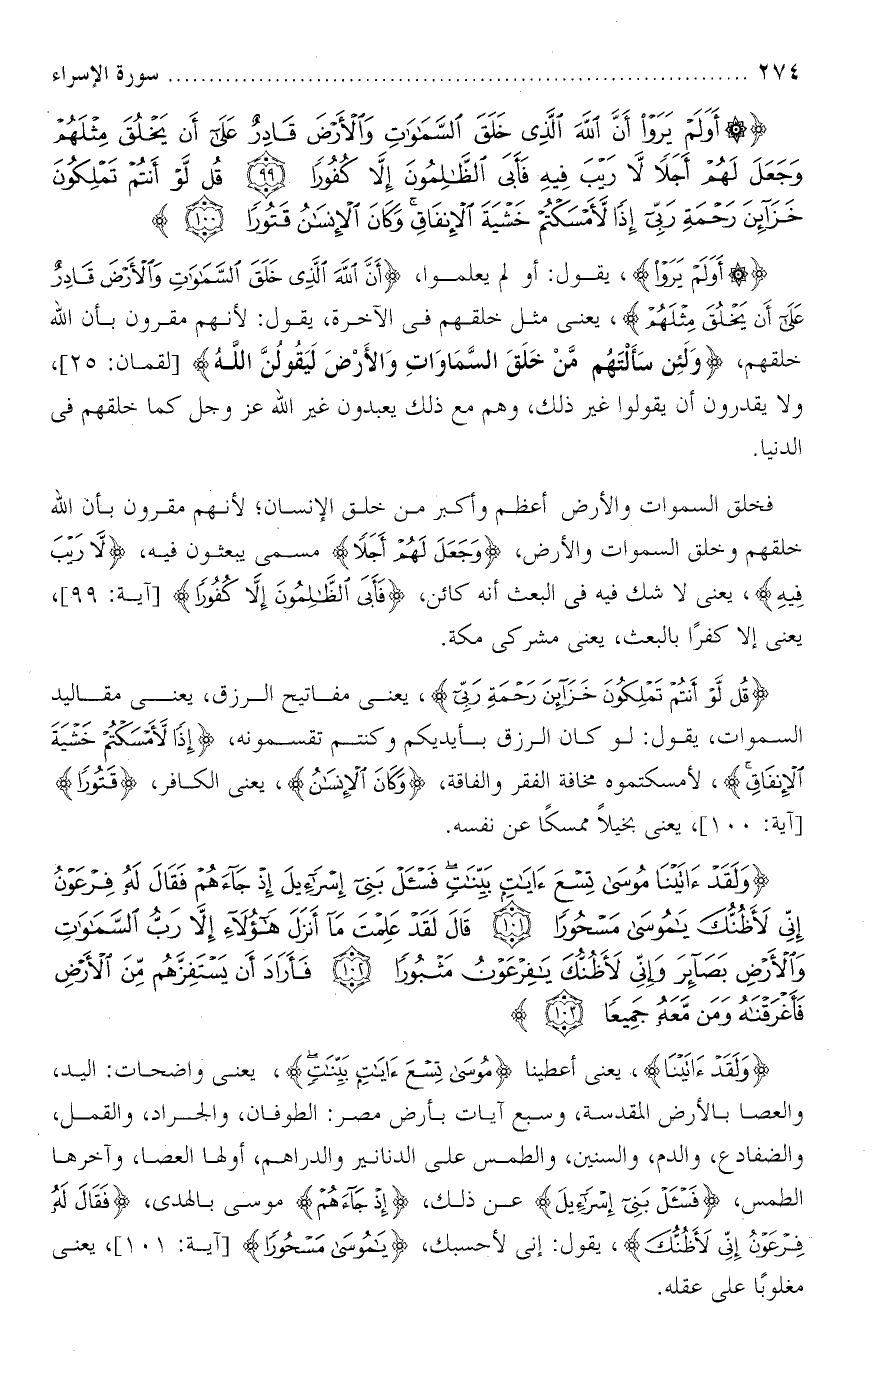 ٢٧٤ ........................................................................ سورة الإسراء
﴿۞ أَوَلَمْ يَرَوْا۟ أَنَّ ٱللَّهَ ٱلَّذِى خَلَقَ ٱلسَّمَـٰوَٰتِ وَٱلْأَرْضَ قَادِرٌ عَلَىٰٓ أَن يَخْلُقَ مِثْلَهُمْ
وَجَعَلَ لَهُمْ أَجَلًا لَّا رَيْبَ فِيهِ فَأَبَى ٱلظَّـٰلِمُونَ إِلَّا كُفُورًا ٩٩ قُل لَّوْ أَنتُمْ تَمْلِكُونَ
خَزَآئِنَ رَحْمَةِ رَبِّىٓ إِذًا لَّأَمْسَكْتُمْ خَشْيَةَ ٱلْإِنفَاقِ ۚ وَكَانَ ٱلْإِنسَـٰنُ قَتُورًا ١٠٠ ﴾
﴿۞ أَوَلَمْ يَرَوْا۟﴾، يقول: أو لم يعلموا، ﴿أَنَّ ٱللَّهَ ٱلَّذِى خَلَقَ ٱلسَّمَـٰوَٰتِ وَٱلْأَرْضَ قَادِرٌ
عَلَىٰٓ أَن يَخْلُقَ مِثْلَهُمْ﴾، يعنى مثل خلقهم فى الآخرة، يقول: لأنهم مقرون بأن الله
خلقهم، ﴿وَلَئِن سَأَلْتَهُم مَّنْ خَلَقَ السَّمَاوَاتِ وَالأَرْضَ لَيَقُولُنَّ اللَّهُ﴾ [لقمان: ٢٥]،
ولا يقدرون أن يقولوا غير ذلك، وهم مع ذلك يعبدون غير الله عز وجل كما خلقهم فى
الدنيا.
فخلق السموات والأرض أعظم وأكبر من خلق الإنسان؛ لأنهم مقرون بأن الله
خلقهم وخلق السموات والأرض، ﴿وَجَعَلَ لَهُمْ أَجَلًا﴾ مسمى يبعثون فيه، ﴿لَّا رَيْبَ
فِيهِ﴾، يعنى لا شك فيه فى البعث أنه كائن، ﴿فَأَبَى ٱلظَّـٰلِمُونَ إِلَّا كُفُورًا﴾ [آية: ٩٩]،
يعنى إلا كفرًا بالبعث، يعنى مشركى مكة.
﴿قُل لَّوْ أَنتُمْ تَمْلِكُونَ خَزَآئِنَ رَحْمَةِ رَبِّىٓ﴾، يعنى مفاتيح الرزق، يعنى مقاليد
السموات، يقول: لو كان الرزق بأيديكم وكنتم تقسمونه، ﴿إِذًا لَّأَمْسَكْتُمْ خَشْيَةَ
ٱلْإِنفَاقِ ۚ﴾، لأمسكتموه مخافة الفقر والفاقة، ﴿وَكَانَ ٱلْإِنسَـٰنُ﴾، يعنى الكافر، ﴿قَتُورًا﴾
[آية: ١٠٠]، يعنى بخيلاً ممسكًا عن نفسه.
﴿وَلَقَدْ ءَاتَيْنَا مُوسَىٰ تِسْعَ ءَايَـٰتٍۭ بَيِّنَـٰتٍ ۖ فَسْـَٔلْ بَنِىٓ إِسْرَٰٓءِيلَ إِذْ جَآءَهُمْ فَقَالَ لَهُۥ فِرْعَوْنُ
إِنِّى لَأَظُنُّكَ يَـٰمُوسَىٰ مَسْحُورًا ١٠١ قَالَ لَقَدْ عَلِمْتَ مَآ أَنزَلَ هَـٰٓؤُلَآءِ إِلَّا رَبُّ ٱلسَّمَـٰوَٰتِ
وَٱلْأَرْضِ بَصَآئِرَ وَإِنِّى لَأَظُنُّكَ يَـٰفِرْعَوْنُ مَثْبُورًا ١٠٢ فَأَرَادَ أَن يَسْتَفِزَّهُم مِّنَ ٱلْأَرْضِ
فَأَغْرَقْنَـٰهُ وَمَن مَّعَهُۥ جَمِيعًا ١٠٣ ﴾
﴿وَلَقَدْ ءَاتَيْنَا﴾، يعنى أعطينا ﴿مُوسَىٰ تِسْعَ ءَايَـٰتٍۭ بَيِّنَـٰتٍ ۖ﴾، يعنى واضحات: اليد،
والعصا بالأرض المقدسة، وسبع آيات بأرض مصر: الطوفان، والجراد، والقمل،
والضفادع، والدم، والسنين، والطمس على الدنانير والدراهم، أولها العصا، وآخرها
الطمس، ﴿فَسْـَٔلْ بَنِىٓ إِسْرَٰٓءِيلَ﴾ عن ذلك، ﴿إِذْ جَآءَهُمْ﴾ موسى بالهدى، ﴿فَقَالَ لَهُۥ
فِرْعَوْنُ إِنِّى لَأَظُنُّكَ﴾، يقول: إنى لأحسبك، ﴿يَـٰمُوسَىٰ مَسْحُورًا﴾ [آية: ١٠١]، يعنى
مغلوبًا على عقله.